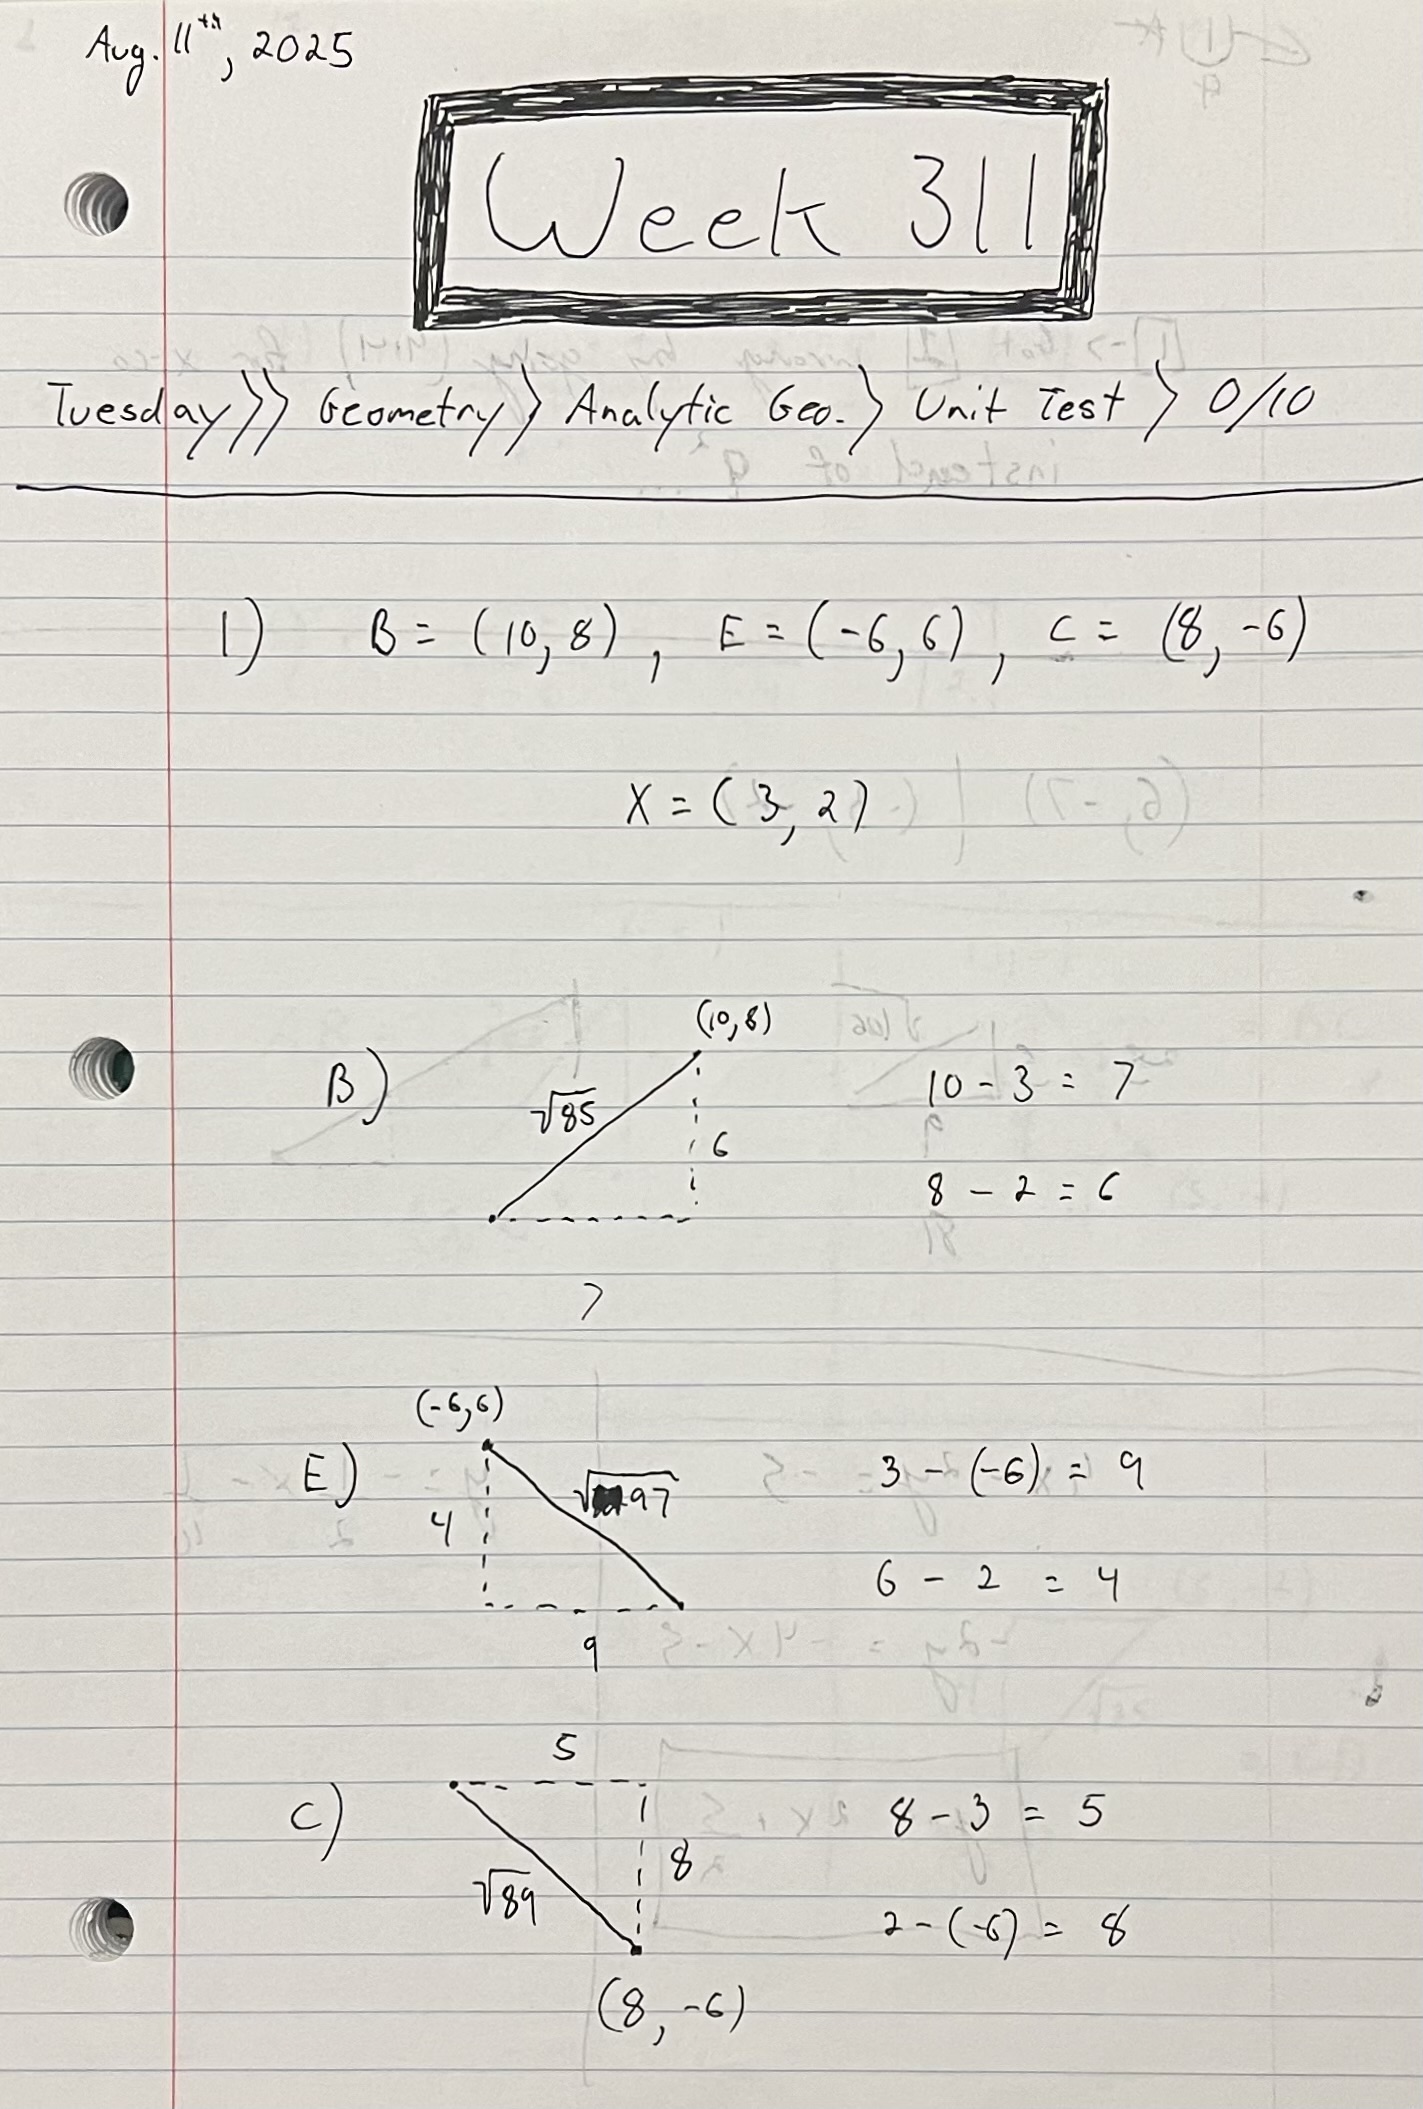 Aug. 11th, 2025
Week 311
Tuesday >> Geometry > Analytic Geo. > Unit Test > 0/10
1) B = (10, 8), E = (-6, 6), C = (8, -6)
X = (3, 2)
(10, 8)
B) √85 10 - 3 = 7
6
8 - 2 = 6
7
(-6, 6)
E) √97 3 - (-6) = 9
4
6 - 2 = 4
9
5
C) 8 - 3 = 5
8
√89
2 - (-6) = 8
(8, -6)